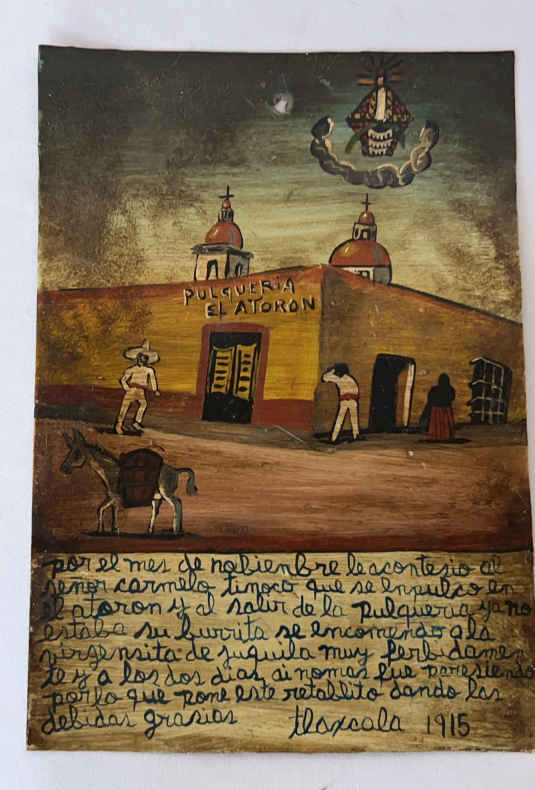 PULQUERIA
EL ATORON
por el mes de nobienbre le acontesio al
señor carmelo tinoco que se enpulco en
el atoron y al salir de la pulqueria ya no
estaba su burrita se encomendo a la
virgensita de juquila muy ferbidamen
te y a los dos dias ai nomas fue paresiendo
por lo que pone este retablito dando las
debidas grasias tlaxcala 1915